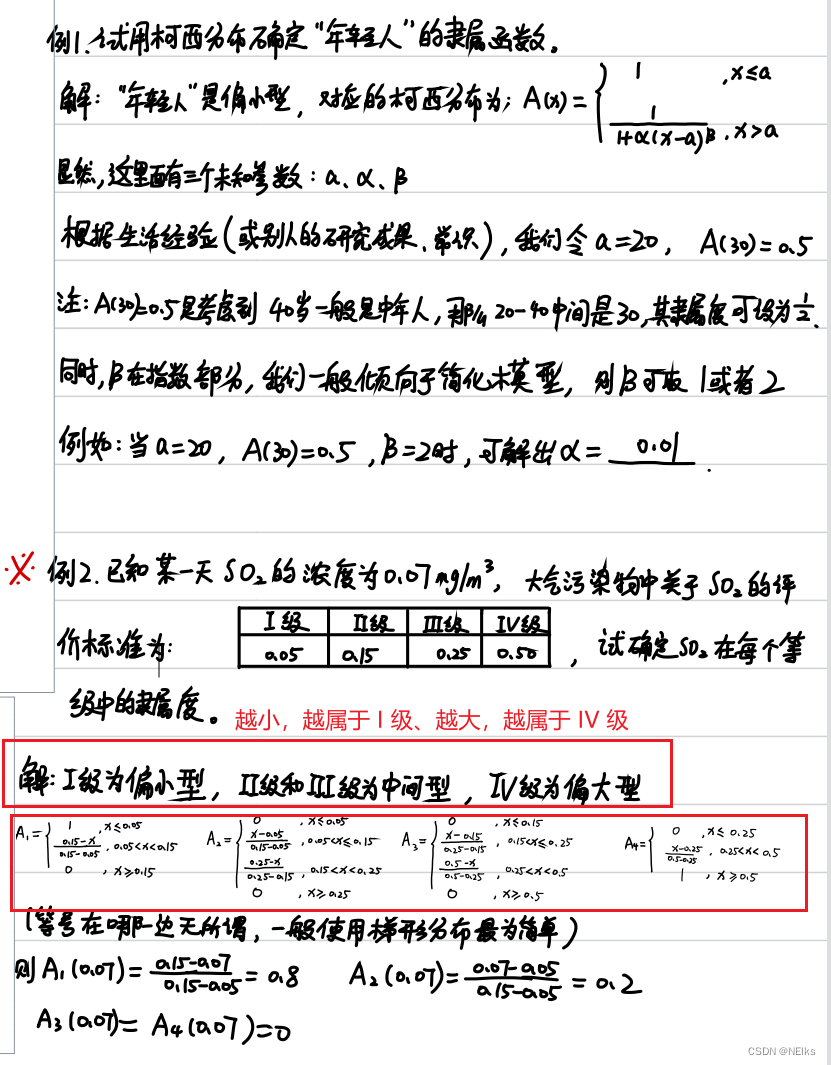 例1. 试用柯西分布确定“年轻人”的隶属函数。
解：“年轻人”是偏小型，对应的柯西分布为；A(x)= { 1 , x≤a
1/(1+α(x-a)^β) , x>a
显然,这里面有三个未知参数：a、α、β
根据生活经验(或别人的研究成果、常识)，我们令 a=20， A(30)=0.5
注: A(30)=0.5是考虑到 40岁一般是中年人，那么 20-40中间是30,其隶属度可设为1/2.
同时, β在指数部分，我们一般倾向于简化模型，则β可取 1或者2
例如：当a=20，A(30)=0.5 , β=2时，可解出α= 0.01 .
※ 例2. 已知某一天 SO₂的浓度为0.07mg/m³， 大气污染物中关于SO₂的评
价标准为: Ⅰ级 Ⅱ级 Ⅲ级 Ⅳ级
0.05 0.15 0.25 0.50 ，试确定SO₂在每个等
级中的隶属度。 越小，越属于 I 级、越大，越属于 IV 级
解: Ⅰ级为偏小型，Ⅱ级和Ⅲ级为中间型，Ⅳ级为偏大型
A₁= { 1 , x≤0.05
(0.15-x)/(0.15-0.05) , 0.05<x<0.15
0 , x≥0.15
A₂= { 0 , x≤0.05
(x-0.05)/(0.15-0.05) , 0.05<x≤0.15
(0.25-x)/(0.25-0.15) , 0.15<x<0.25
0 , x≥0.25
A₃= { 0 , x≤0.15
(x-0.15)/(0.25-0.15) , 0.15<x≤0.25
(0.5-x)/(0.5-0.25) , 0.25<x<0.5
0 , x≥0.5
A₄= { 0 , x≤0.25
(x-0.25)/(0.5-0.25) , 0.25<x<0.5
1 , x≥0.5
(等号在哪一边无所谓，一般使用梯形分布最为简单)
则 A₁(0.07)= (0.15-0.07)/(0.15-0.05) = 0.8 A₂(0.07)= (0.07-0.05)/(0.15-0.05) = 0.2
A₃(0.07)= A₄(0.07)=0
CSDN @NEIks